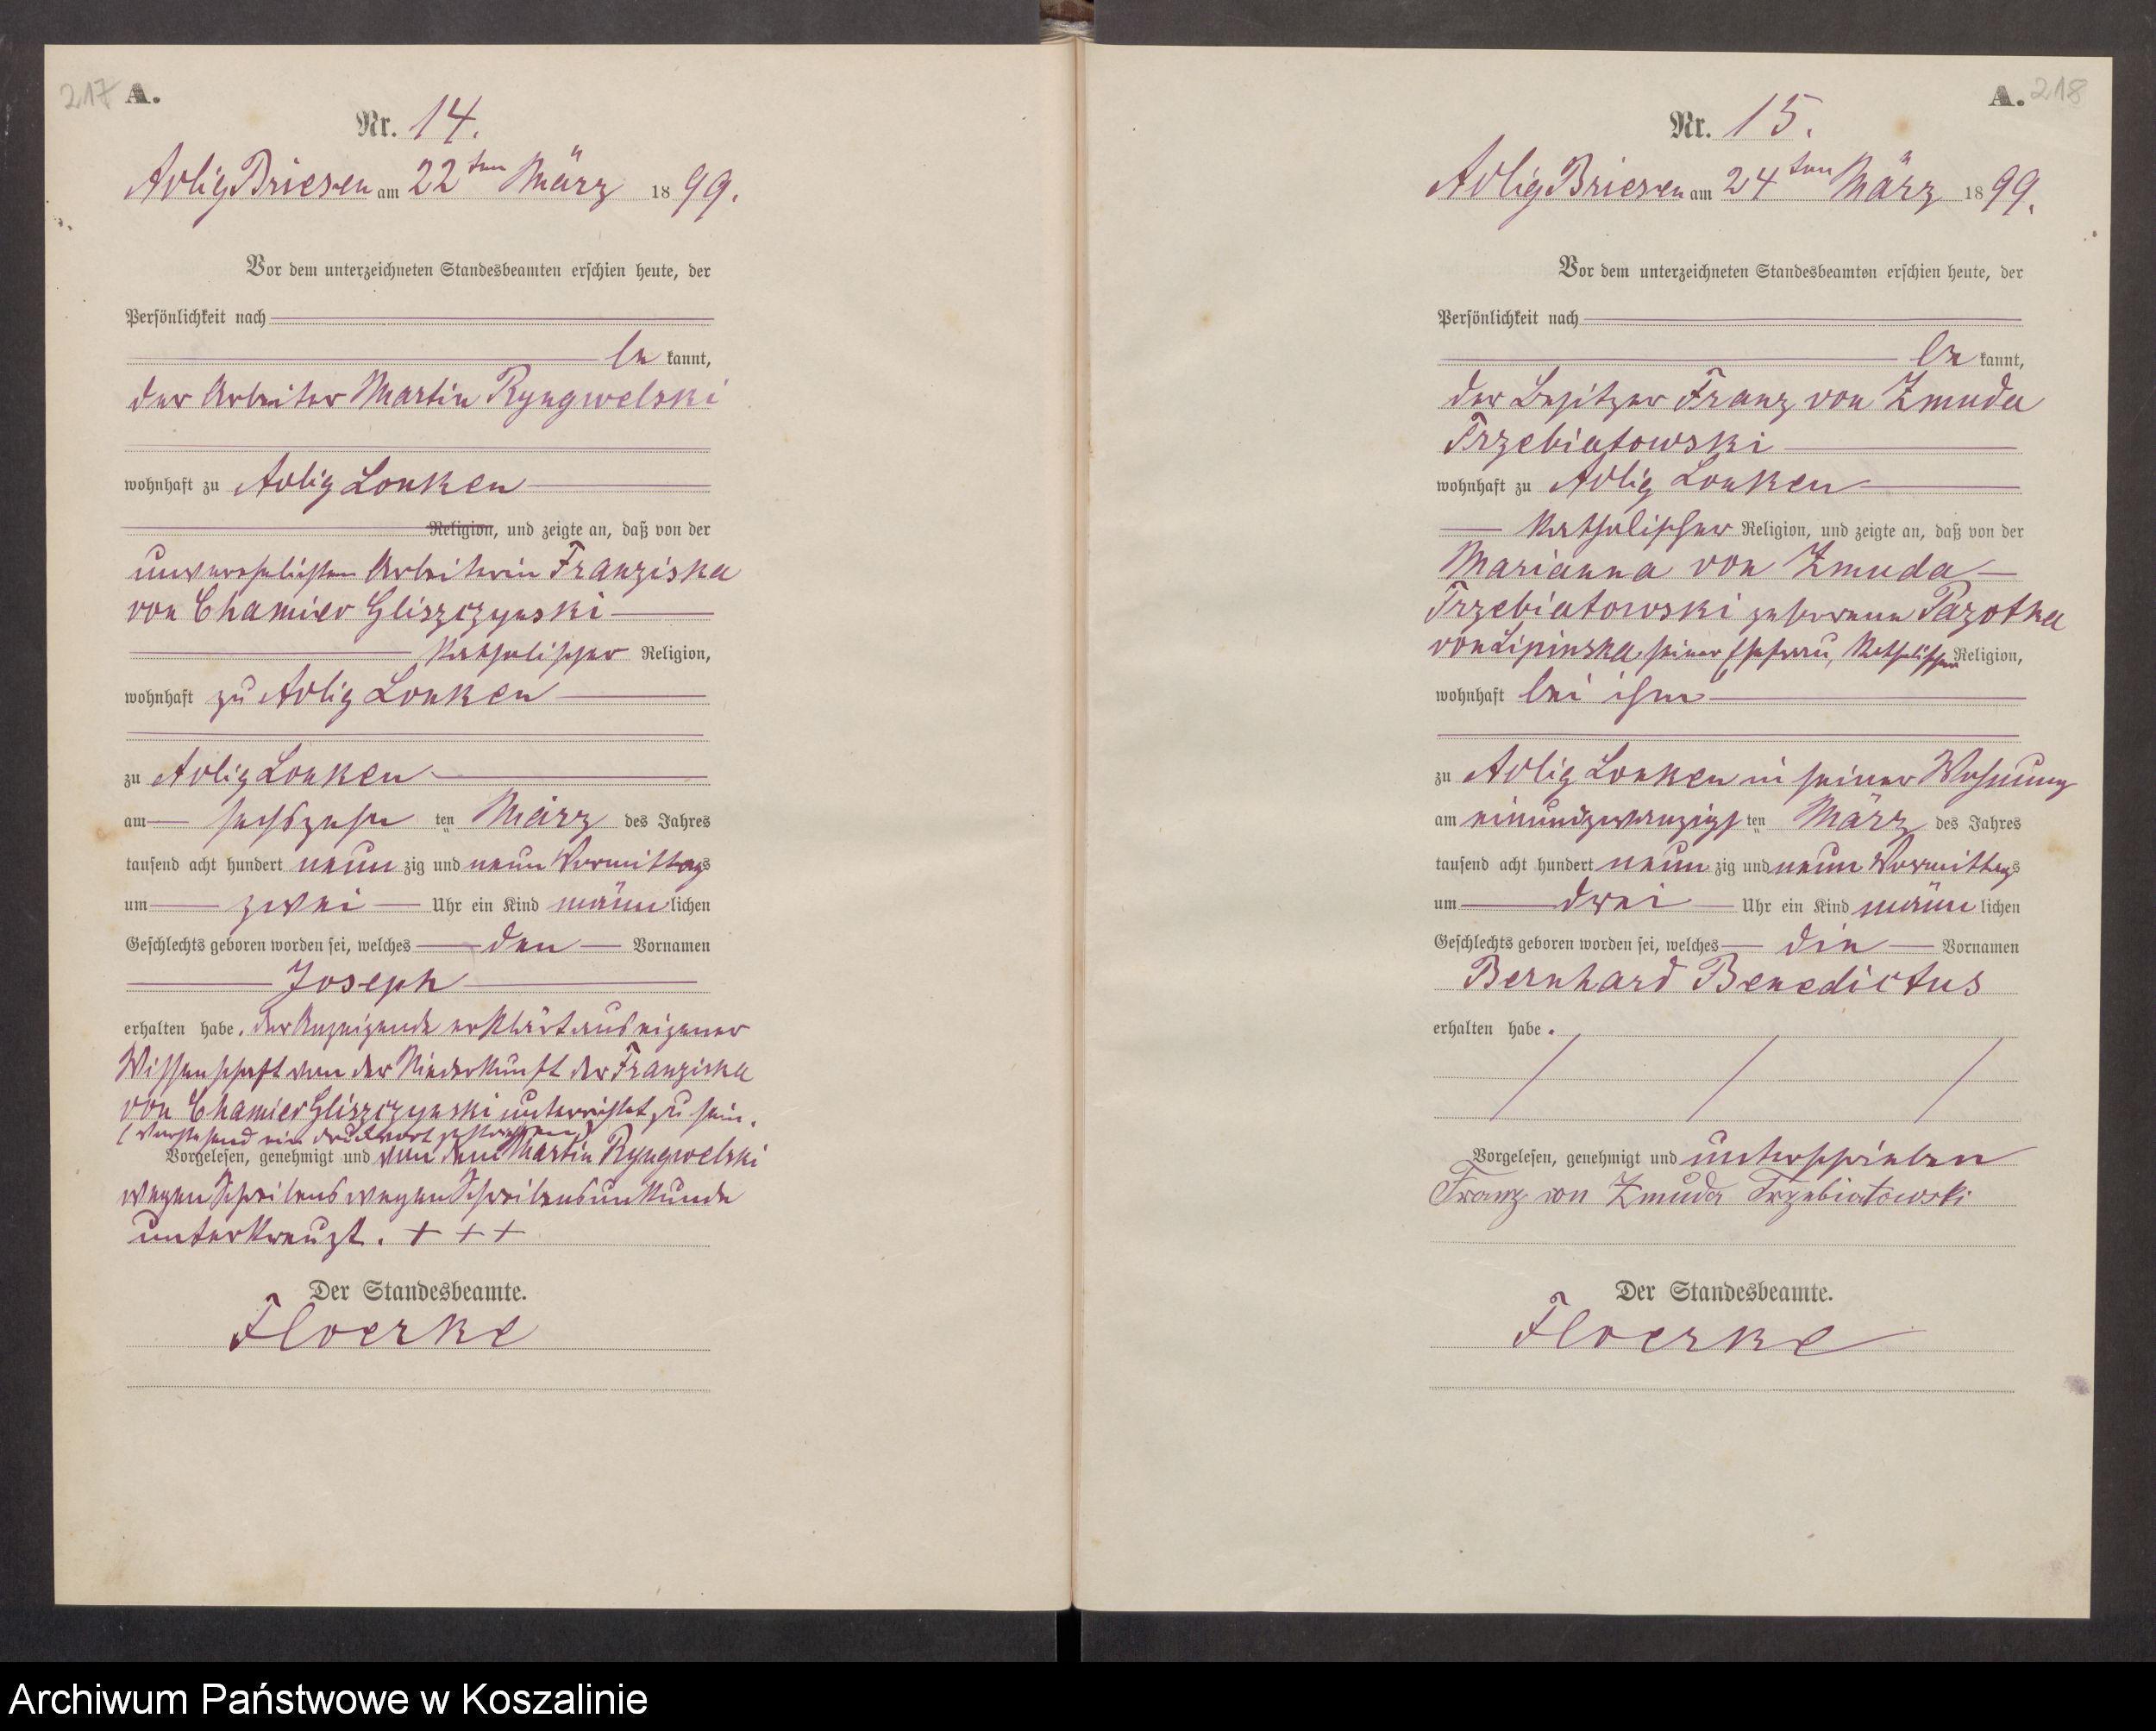 217 A.
Nr. 14.
Adlig Briesen am 22ten März 1899.
Vor dem unterzeichneten Standesbeamten erschien heute, der
Persönlichkeit nach
be kannt,
der Arbeiter Martin Ryngwelski
wohnhaft zu Adlig Lonken
Religion, und zeigte an, daß von der
unverehelichten Arbeiterin Franziska
von Chamier Gliszczynski
katholischer Religion,
wohnhaft zu Adlig Lonken
zu Adlig Lonken
am sechszehn ten März des Jahres
tausend acht hundert neun zig und neun Vormittags
um zwei Uhr ein Kind männlichen
Geschlechts geboren worden sei, welches den Vornamen
Joseph
erhalten habe. Der Anzeigende erklärt aus eigener
Wissenschaft von der Niederkunft der Franziska
von Chamier Gliszczynski unterrichtet zu sein.
(Vorstehend ein Druckwort gestrichen)
Vorgelesen, genehmigt und von dem Martin Ryngwelski
wegen Schreibens wegen Schreibensunkunde
unterkreuzt. + + +
Der Standesbeamte.
Floerke
A. 218
Nr. 15.
Adlig Briesen am 24ten März 1899.
Vor dem unterzeichneten Standesbeamten erschien heute, der
Persönlichkeit nach
be kannt,
der Besitzer Franz von Zmuda
Trzebiatowski
wohnhaft zu Adlig Lonken
katholischer Religion, und zeigte an, daß von der
Marianna von Zmuda
Trzebiatowski geborenen Pazotka
von Lipinska seiner Ehefrau, katholischer Religion,
wohnhaft bei ihm
zu Adlig Lonken in seiner Wohnung
am einundzwanzigsten März des Jahres
tausend acht hundert neun zig und neun Vormittags
um drei Uhr ein Kind männlichen
Geschlechts geboren worden sei, welches die Vornamen
Bernhard Benedictus
erhalten habe.
Vorgelesen, genehmigt und unterschrieben
Franz von Zmuda Trzebiatowski
Der Standesbeamte.
Floerke
Archiwum Państwowe w Koszalinie